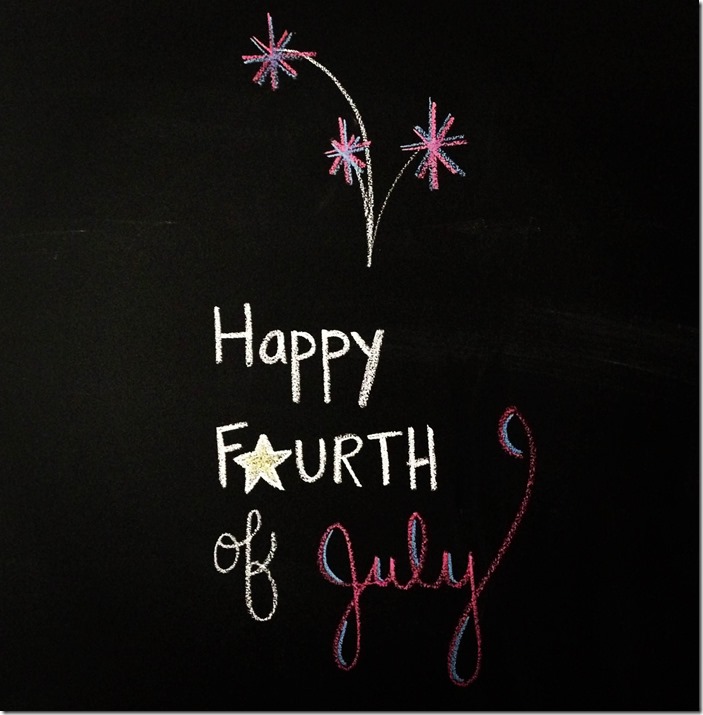 Happy
FOURTH
of July